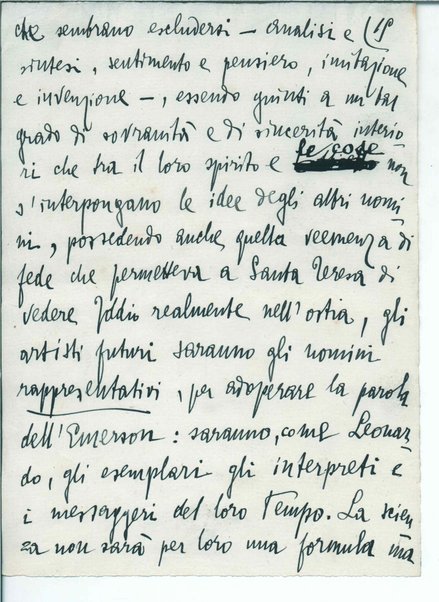 che sembrano escludersi – analisi e (19
sintesi, sentimento e pensiero, imitazione
e invenzione –, essendo giunti a un tal
grado di sovranità e di sincerità interio
ri che tra il loro spirito e le cose non
s'interpongano le idee degli altri uomi
ni, possedendo anche quella veemenza di
fede che permetteva a Santa Teresa di
vedere Iddio realmente nell'ostia, gli
artisti futuri saranno gli uomini
rappresentativi, per adoperare la parola
dell'Emerson: saranno, come Leonar
do, gli esemplari gli interpreti e
i messaggeri del loro Tempo. La scien
za non sarà per loro una formula ma